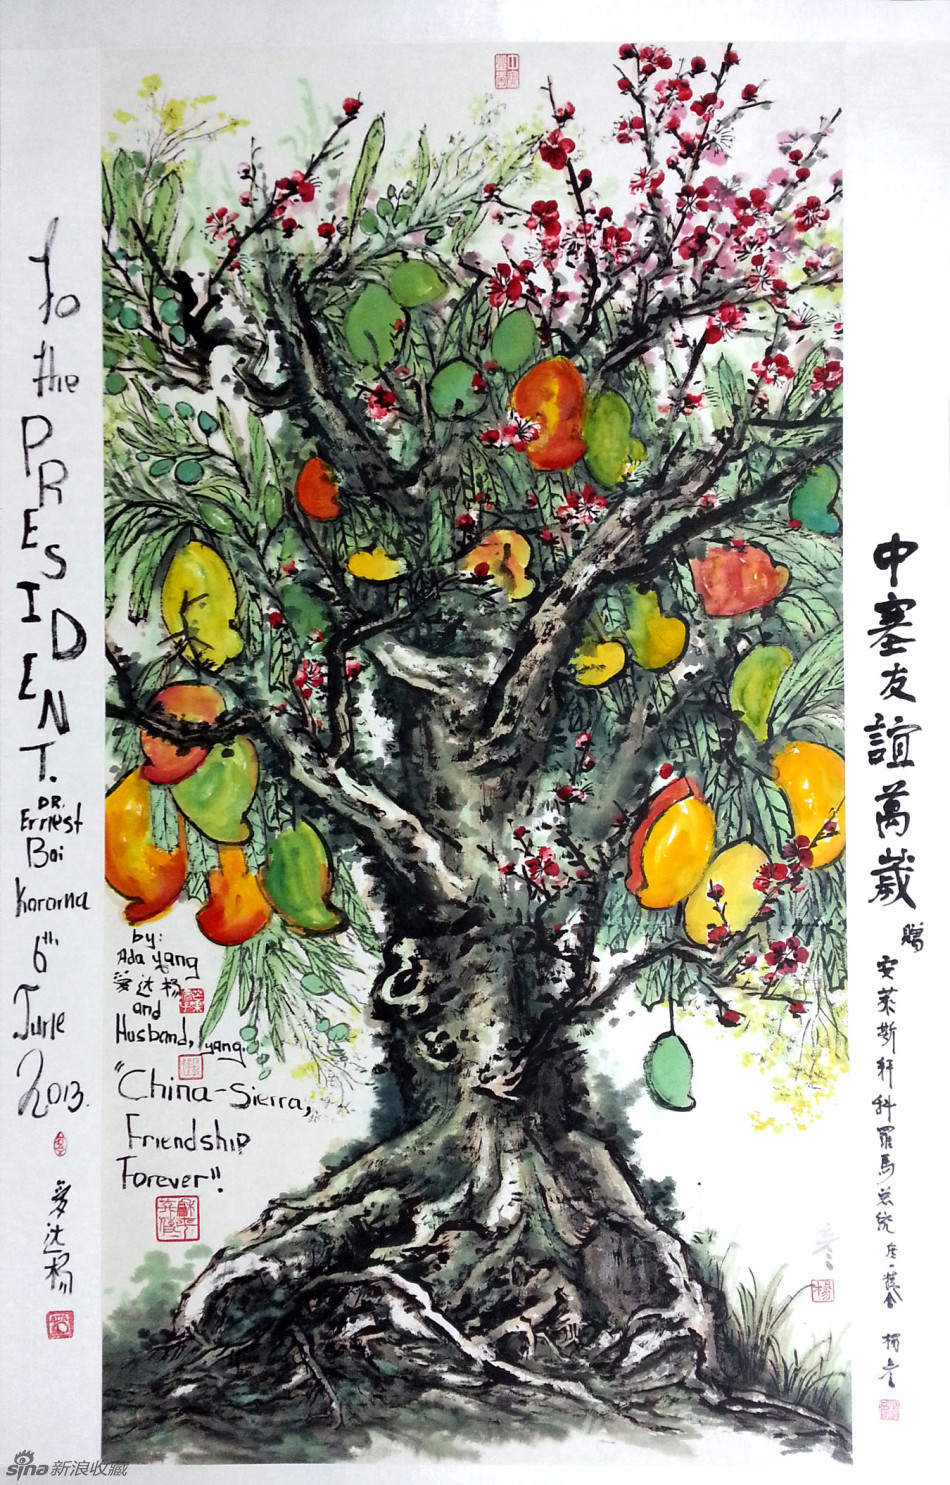 To
the
PRESIDENT.
DR.
Erriest
Bai
Kororna
6th
June
2013.
爱达杨
by:
Ada yang
爱达杨
and
Husband, yang.
"China-Sierra,
Friendship
Forever".
中塞友誼萬歲
贈
安萊斯轩科羅馬总统
杨彦
sina新浪收藏